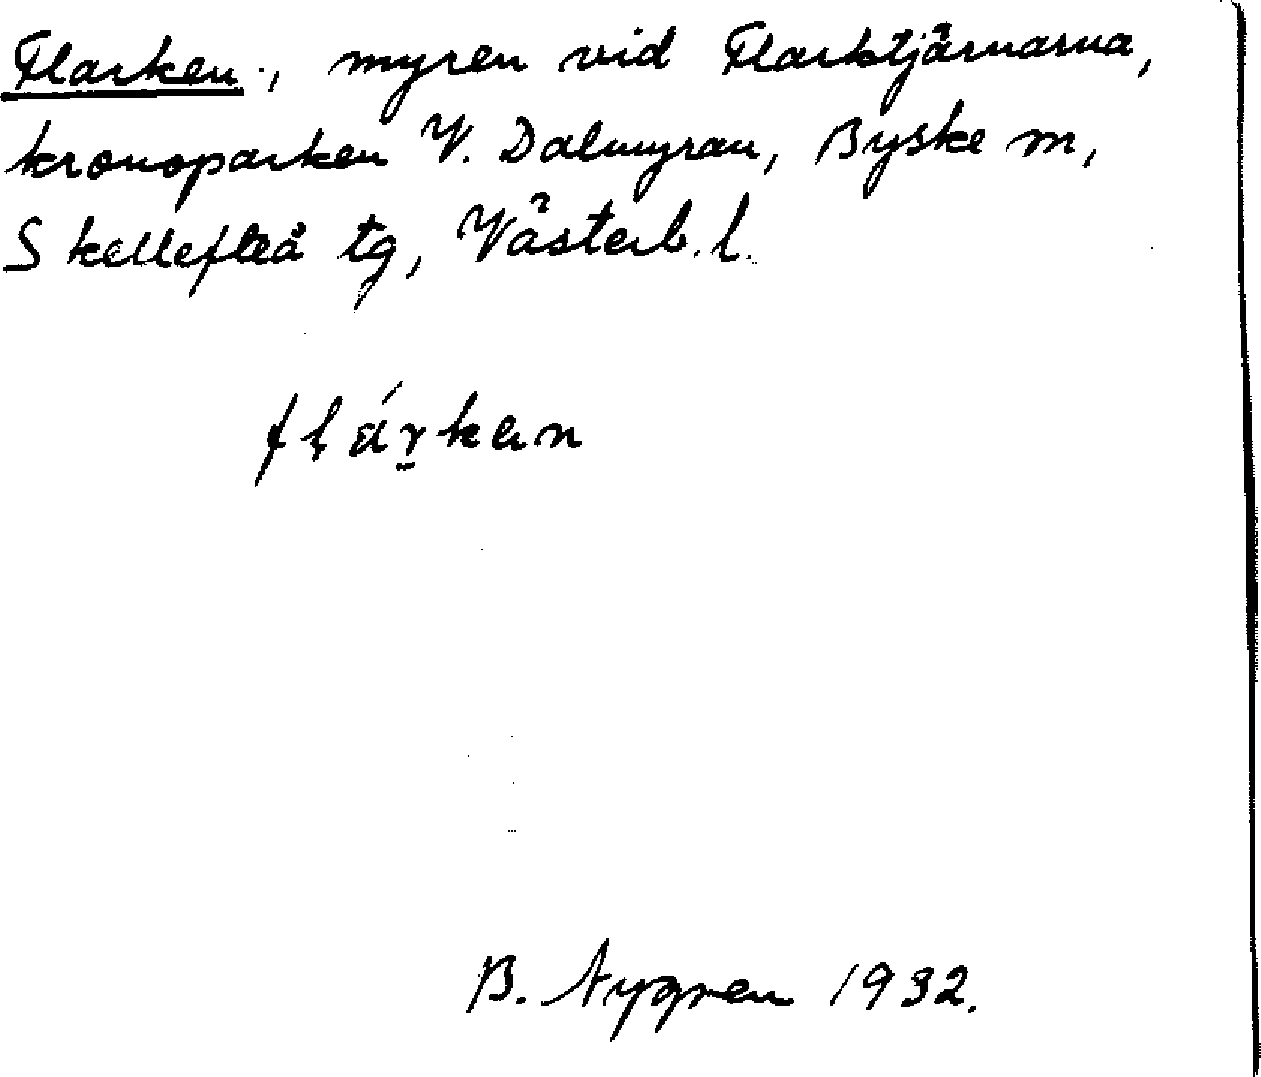 Flarken, myren vid Flarktjärnarna,
kronoparken V. Dalmyran, Byske sn,
Skellefteå tg, Västerb. l.
flárkɐn
B. Nygren 1932.